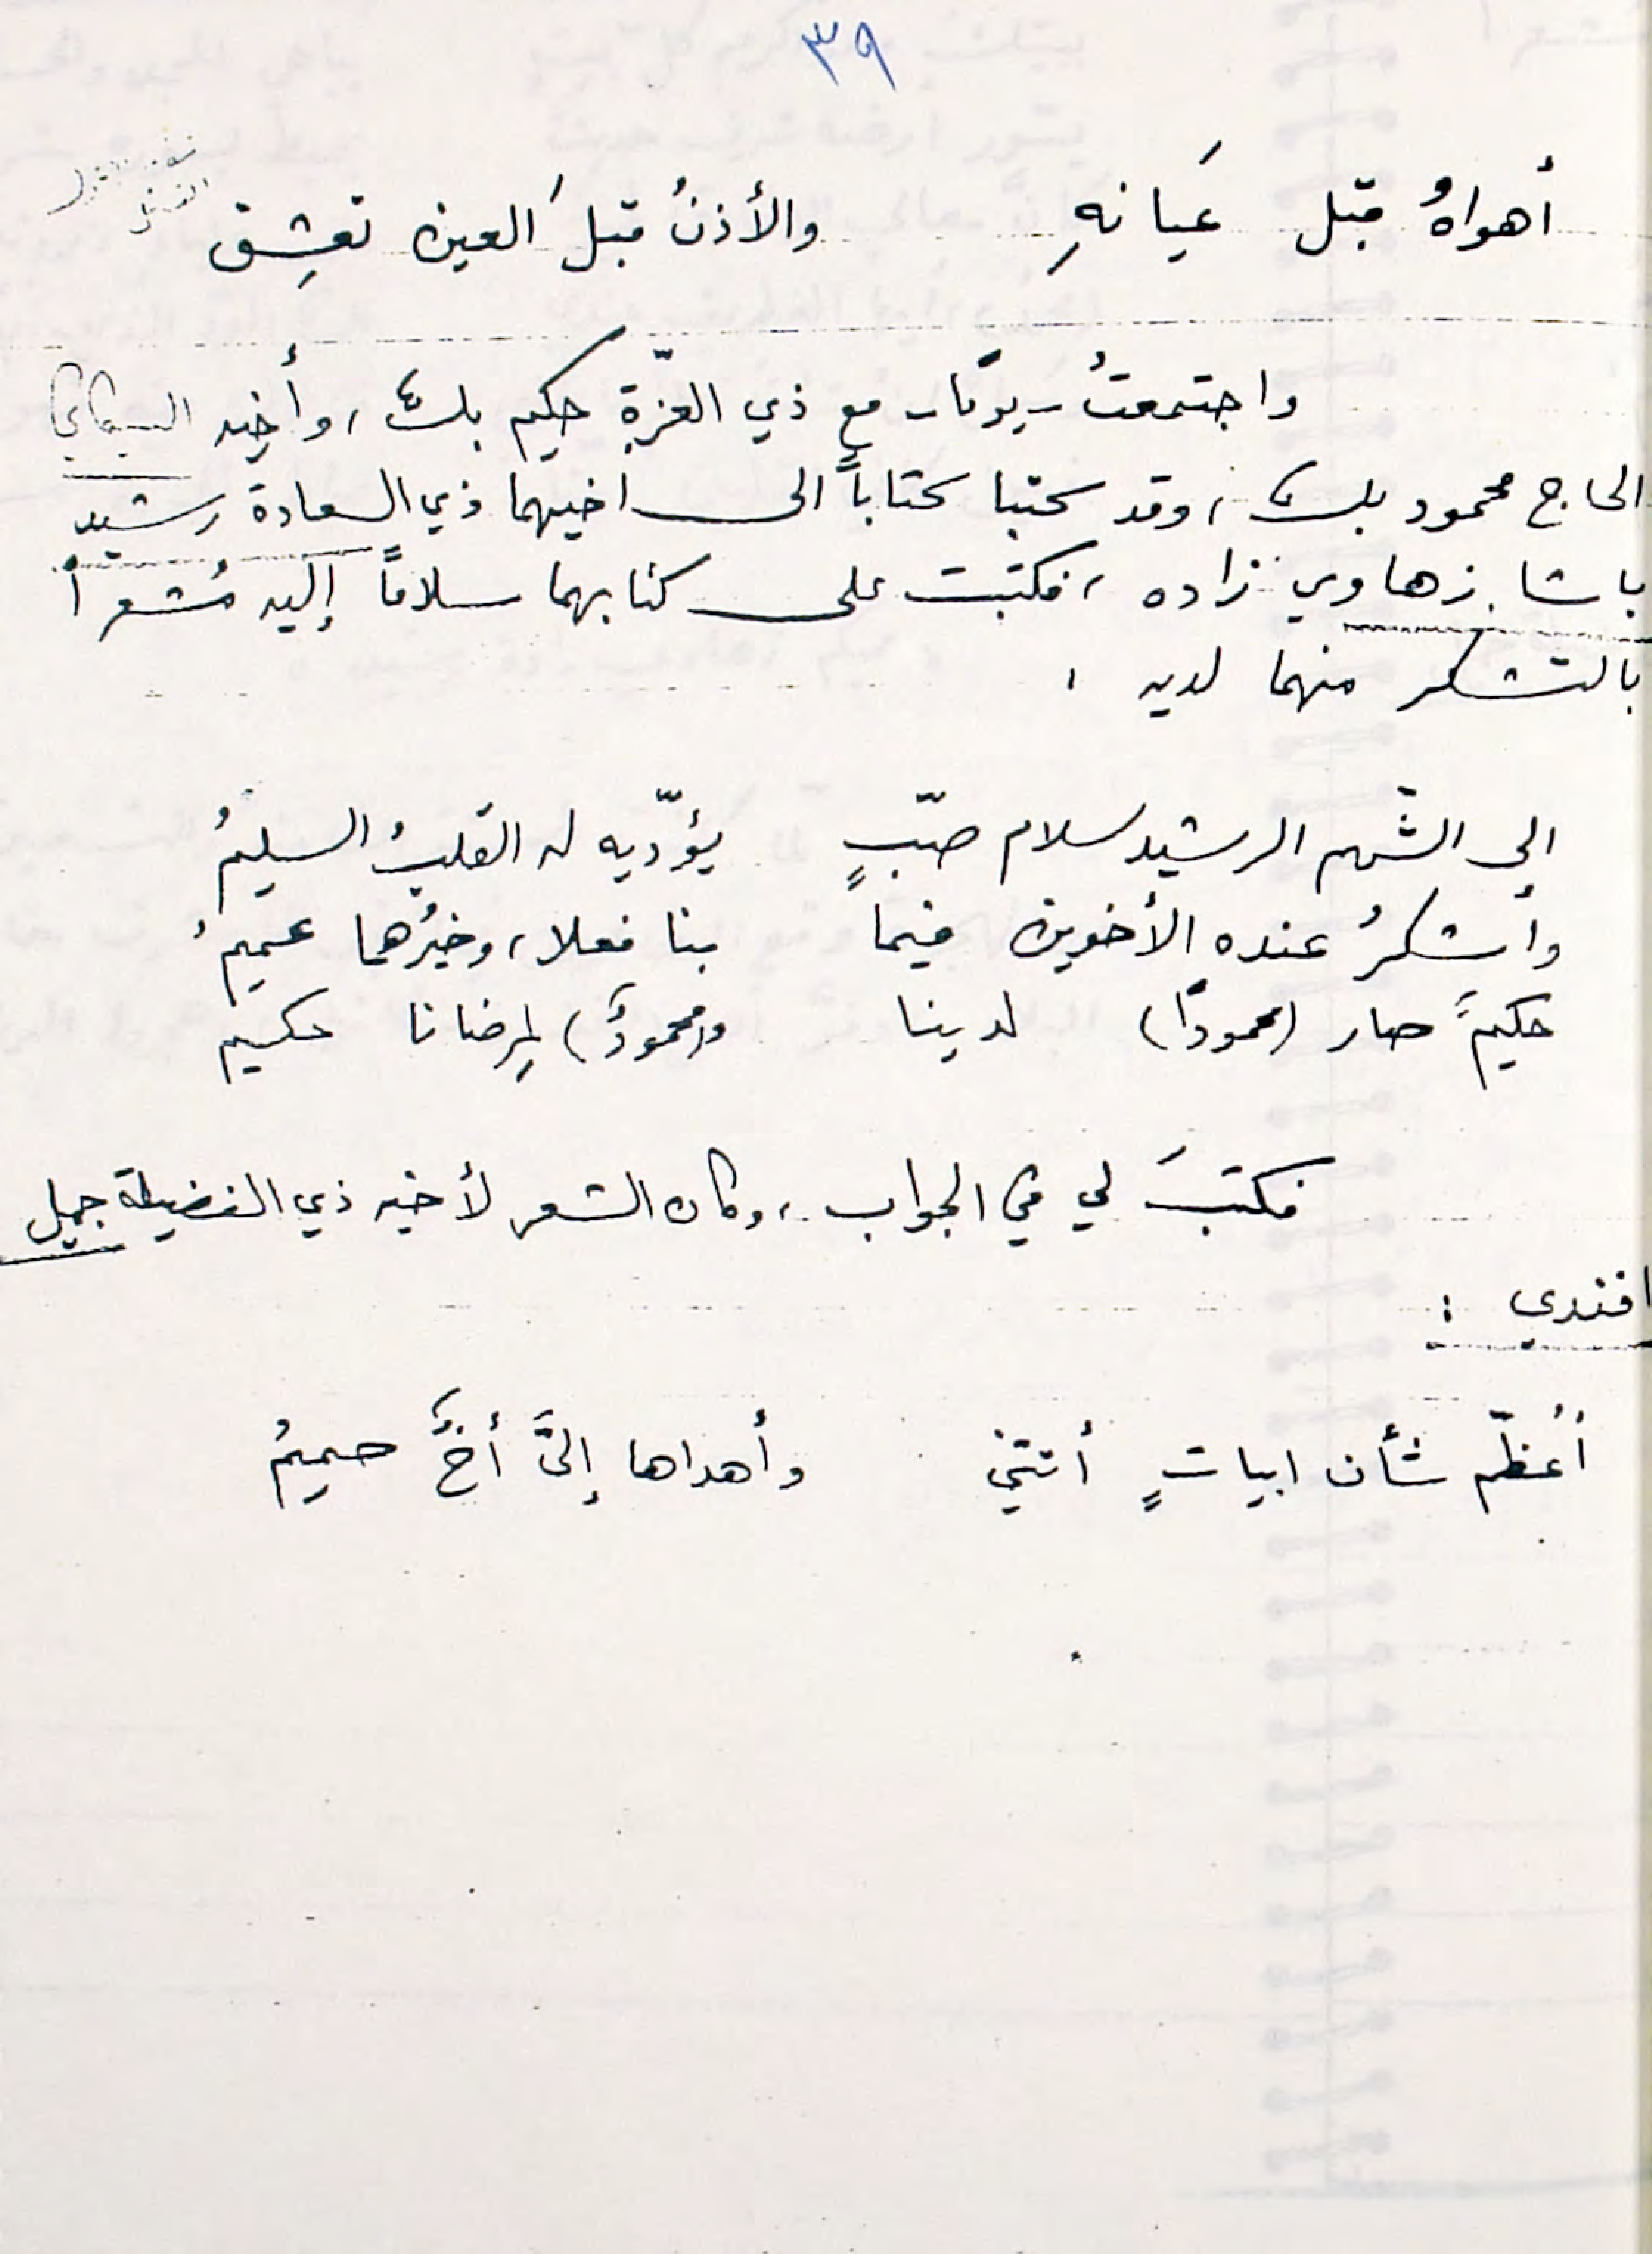 ٣٩
أهواهُ قبل عَيانهِ والأذنُ قبلَ العين تعشِق
واجتمعتُ يومًا مع ذي العزّةِ حكيم بك، وأخيه
الحاج محمود بك، وقد كتبا كتاباً الى اخيهما ذي السعادة رشيد
باشا زهاوي زاده، فكتبت على كتابهما سلاماً إليه مُشعراً
بالتشكر منهما لديه :
الى الشّهم الرشيد سلام صبّبٍ يؤدّيه له القلبُ السليمُ
وأشكرُ عنده الأخوين فيما بنا فعلا، وخيرُهما عميمُ
حكيمٌ صار (محمودًا) لدينا و(محمودٌ) لِمرضانا حكيم
فكتبَ لي في الجواب، وكان الشعر لأخيه ذي الفضيلة جميل
افندي :
أُعظّم شأن ابياتٍ أتتني وأهداها إليَّ أخٌ حميمُ